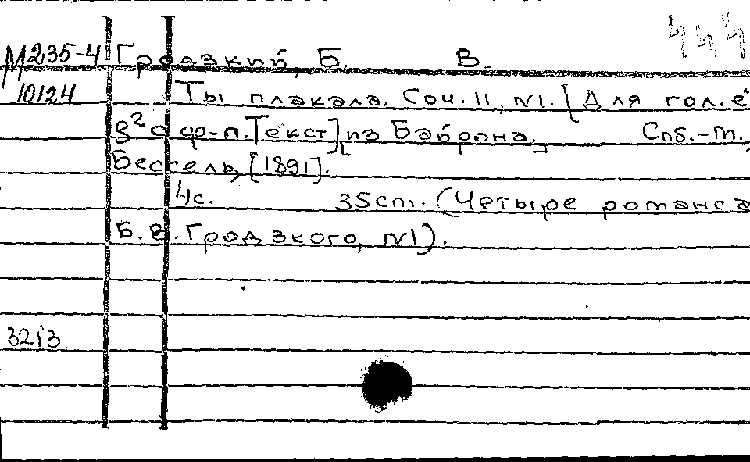 М235-4 Гродзкий, Б. В.
10124 Ты плакала. Соч. 11, №1. [Для гол. e¹
g² с ф-п. Текст] из Байрона. Спб.-М.,
Бессель, [1891].
4с. 35cm. (Четыре романса
Б. В. Гродзкого, №1).
3213